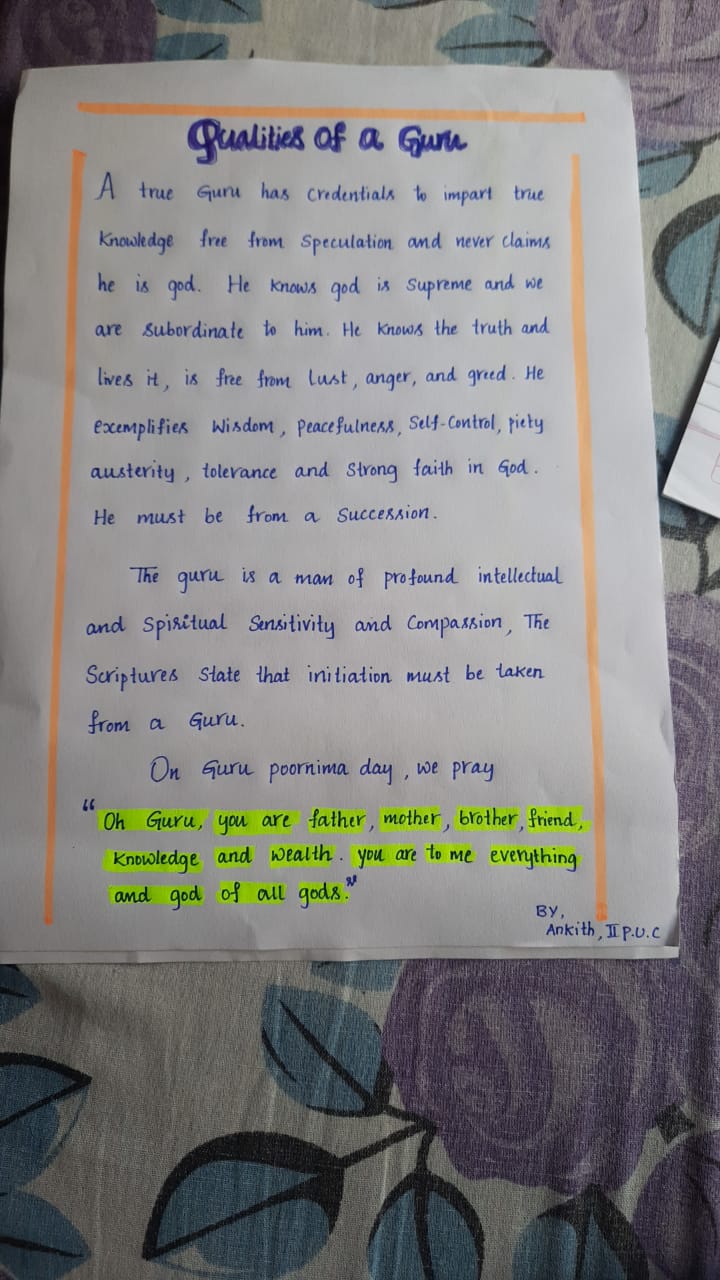 Qualities of a Guru
A true Guru has credentials to impart true
Knowledge free from Speculation and never claims
he is god. He knows god is Supreme and we
are Subordinate to him. He knows the truth and
lives it, is free from lust, anger, and greed. He
excemplifies Wisdom, Peacefulness, Self-Control, piety
austerity, tolerance and Strong faith in God.
He must be from a Succession.
The guru is a man of profound intellectual
and Spiritual Sensitivity and Compassion, The
Scriptures State that initiation must be taken
from a Guru.
On Guru poornima day, we pray
"Oh Guru, you are father, mother, brother, friend,
Knowledge and wealth. you are to me everything
and god of all gods."
BY,
Ankith, II P.U.C